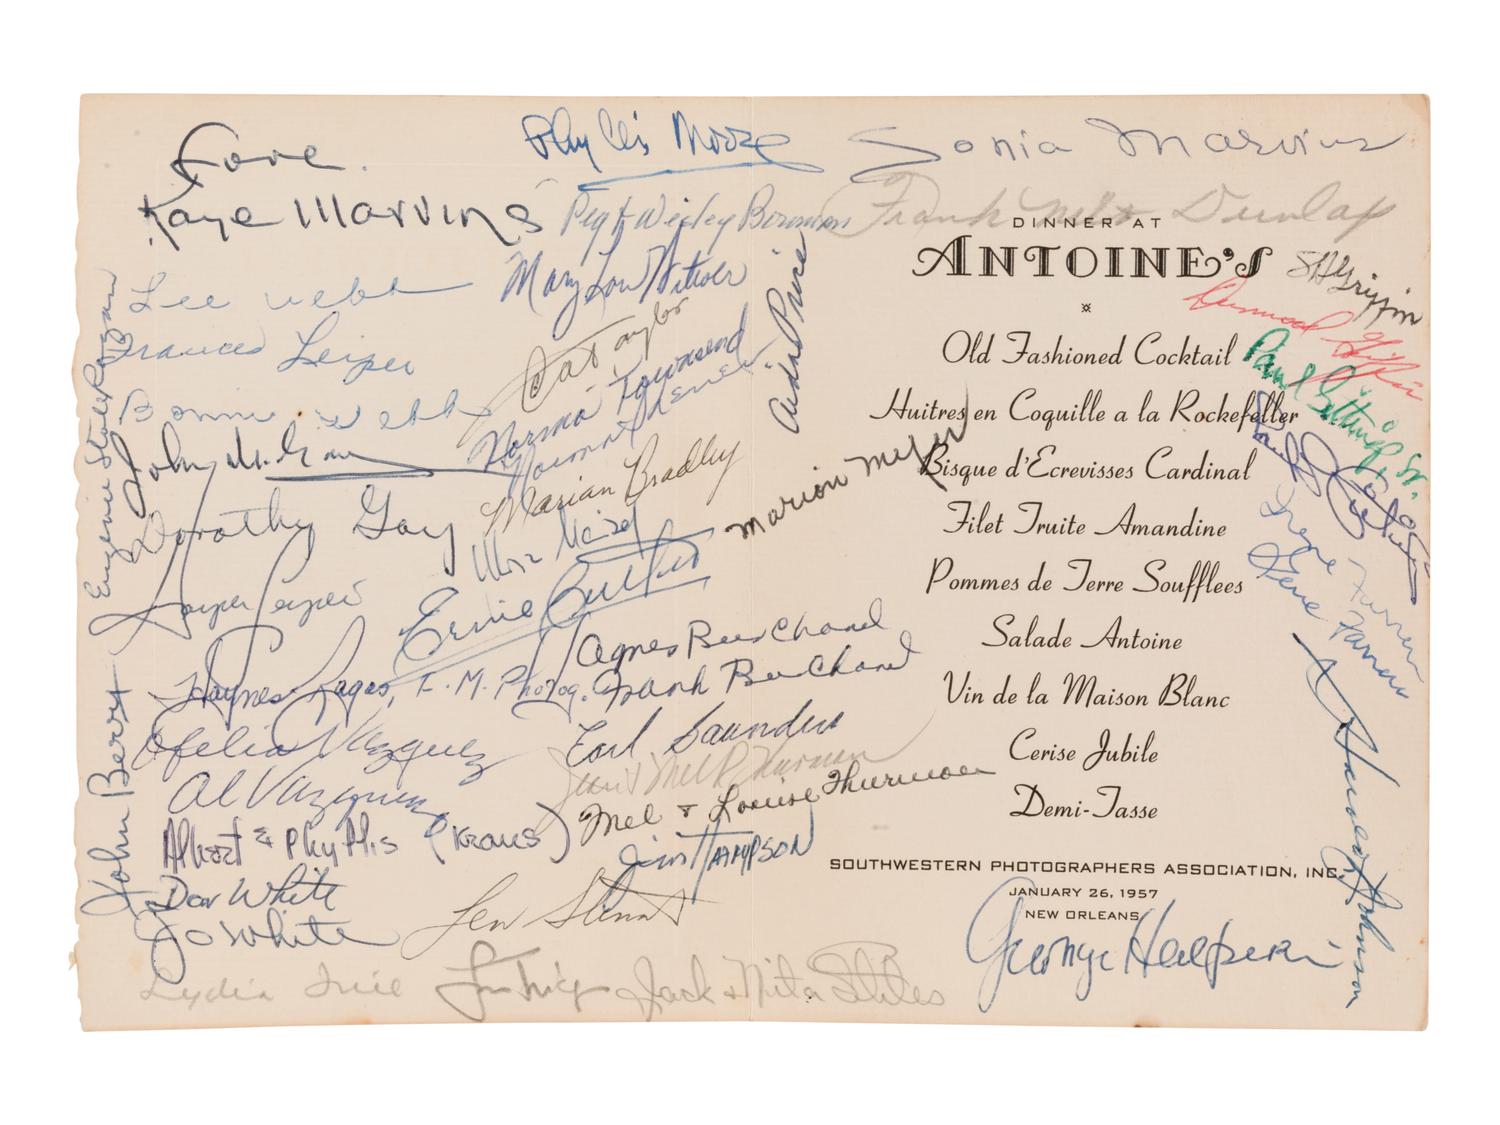 Love
Kaye Marvins
Lee Webb
Frances Leiper
Bonnie Webb
John
Dorothy Gay
Leiper
Haynes T. M. Photog.
Ofelia Vazquez
Al Vazquez
Albert & Phyllis (Kraus)
White
Jo White
Lydia
John Berry
Eugenie
Phyllis Moore
Peg & Wesley Bowman
Mary Lou
Pat Taylor
Norma Townsend
Marian Bradley
Ernie
Agnes Beuschand
Frank Beuchand
Earl Saunders
Jean & Mel P. Thurman
Mel & Louise Thurman
Jim Thompson
Len
Jack & Nita Stiles
Marion Meyer
Sonia Marvins
Frank Dunlap
DINNER AT
ANTOINE'S
Old Fashioned Cocktail
Huitres en Coquille a la Rockefeller
Bisque d'Ecrevisses Cardinal
Filet Truite Amandine
Pommes de Terre Soufflees
Salade Antoine
Vin de la Maison Blanc
Cerise Jubile
Demi-Tasse
SOUTHWESTERN PHOTOGRAPHERS ASSOCIATION, INC.
JANUARY 26, 1957
NEW ORLEANS
George Halperin
Griffin
Griffin
Paul Gittings Sr.
Irene
Gene Farren
Johnson